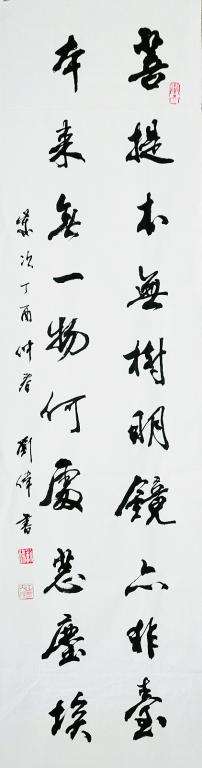 菩提本無樹明鏡亦非臺
本来無一物何處惹塵埃
歲次丁酉仲春劉偉書